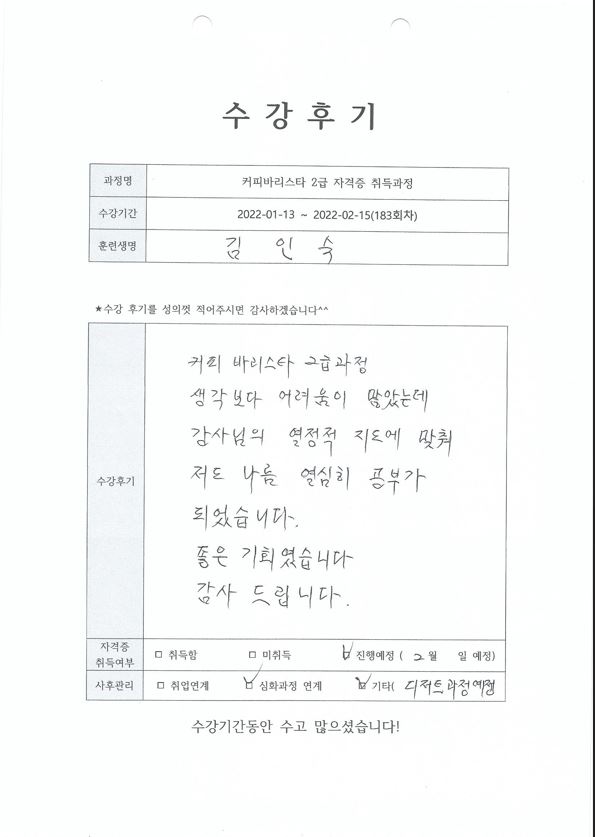 수강후기
과정명 커피바리스타 2급 자격증 취득과정
수강기간 2022-01-13 ~ 2022-02-15(183회차)
훈련생명 김 인 숙
★수강 후기를 성의껏 적어주시면 감사하겠습니다^^
수강후기
커피 바리스타 2급과정
생각보다 어려움이 많았는데
강사님의 열정적 지도에 맞춰
저도 나름 열심히 공부가
되었습니다.
좋은 기회였습니다
감사 드립니다.
자격증 취득여부 □ 취득함 □ 미취득 ☑ 진행예정 ( 2월 일 예정)
사후관리 □ 취업연계 ☑ 심화과정 연계 ☑ 기타( 디저트과정예정
수강기간동안 수고 많으셨습니다!